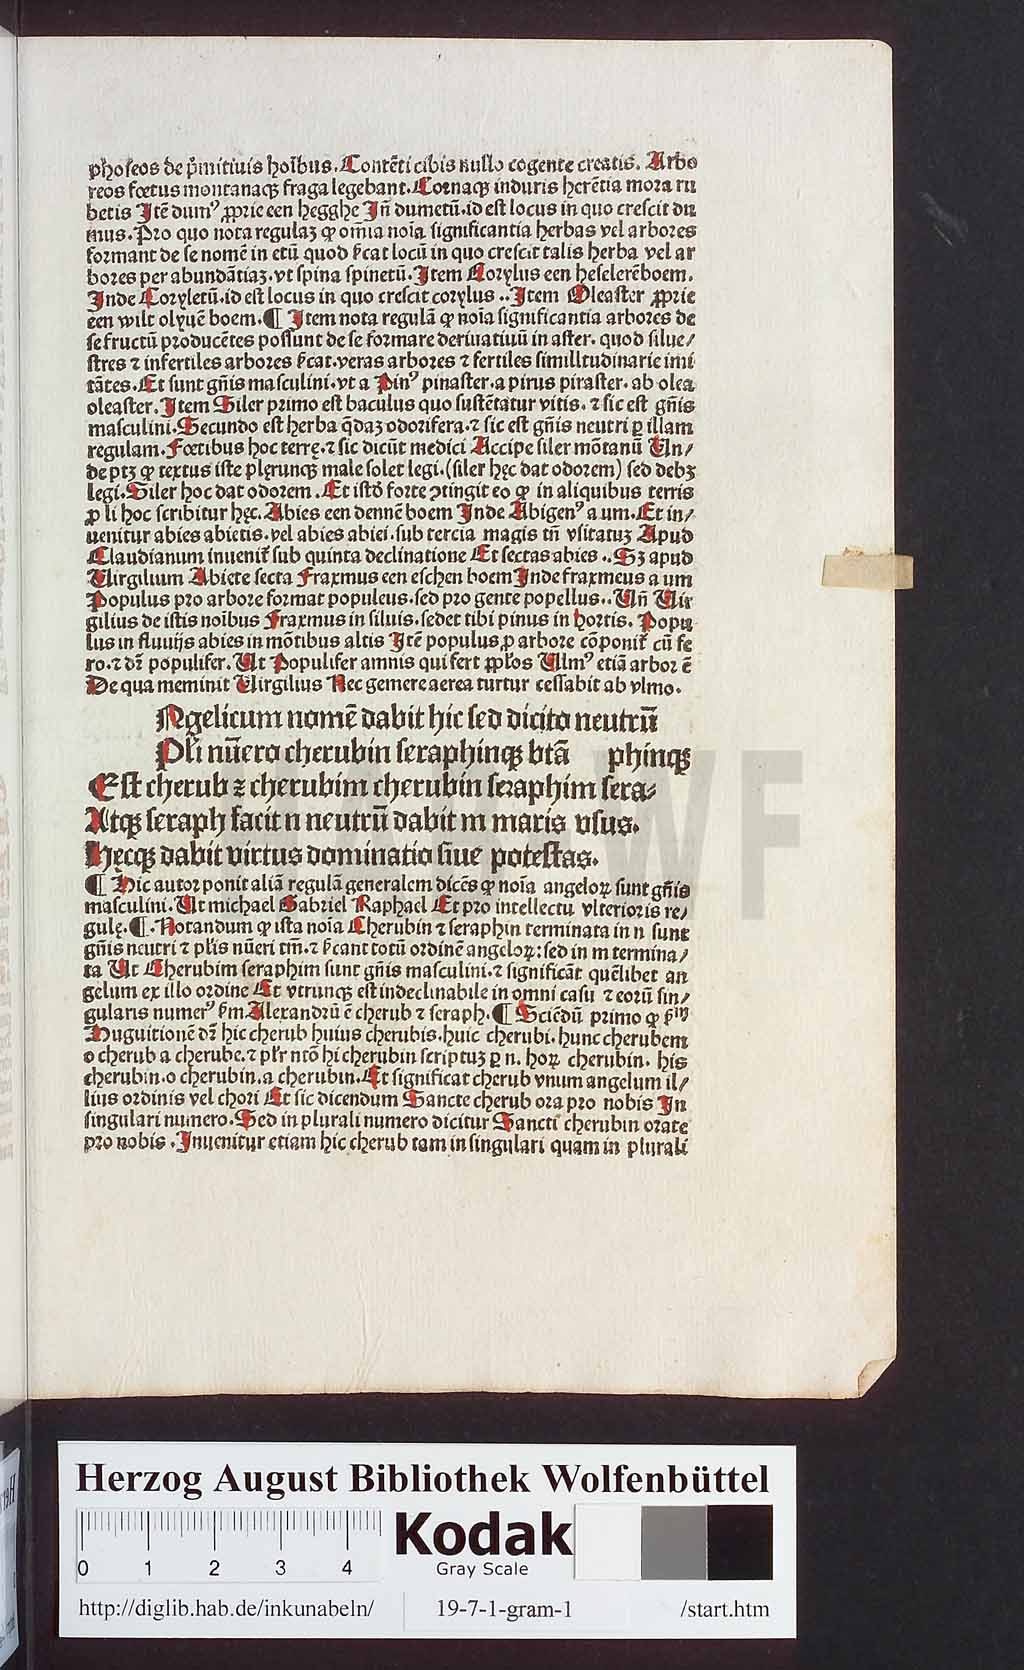 phoseos de p̄mitiuis hoībus. Contēti cibis nullo cogente creatis. Arbo
reos fœtus montanaqꝫ fraga legebant. Cornaqꝫ in duris herētia mora ru
betis Itē dumꝰ ꝓprie een hegghe Iñ dumetū. id est locus in quo crescit du
mus. Pro quo nota regulaꝫ ꝙ omīa noīa significantia herbas vel arbores
formant de se nomē in etū quod ẜcat locū in quo crescit talis herba vel ar
bores per abundātiaꝫ. vt spina spinetū. Item Corylus een heselerēboem.
Inde Coryletū. id est locus in quo crescit corylus .. Item Oleaster ꝓprie
een wilt olyuē boem. ¶ Item nota regulā ꝙ noīa significantia arbores de
se fructū producētes possunt de se formare deriuatiuū in aster. quod silue/
stres ⁊ infertiles arbores ẜcat. veras arbores ⁊ fertiles similltudinarie imi
tātes. Et sunt gn̄is masculini. vt a Pinꝰ pinaster. a pirus piraster. ab olea
oleaster. Item Siler primo est baculus quo sustētatur vitis. ⁊ sic est gn̄is
masculini. Secundo est herba q̄daꝫ odorifera. ⁊ sic est gn̄is neutri ꝑ illam
regulam. Fœtibus hoc terrę. ⁊ sic dicūt medici Accipe siler mōtanū Un/
de ptꝫ ꝙ textus iste plęrunqꝫ male solet legi. (siler hęc dat odorem) sed debꝫ
legi. Siler hoc dat odorem. Et istđ forte ꝯtingit eo ꝙ in aliquibus terris
ꝓ li hoc scribitur hęc. Abies een dennē boem Inde Abigenꝰ a um. Et in/
uenitur abies abietis. vel abies abiei. sub tercia magis tn̄ vsitatuꝫ Apud
Claudianum inuenit᷑ sub quinta declinatione Et sectas abies .. Sꝫ apud
Virgilium Abiete secta Fraxinus een eschen boem Inde fraxineus a um
Populus pro arbore format populeus. sed pro gente popellus .. Un̄ Vir
gilius de istis noībus Fraxinus in siluis. sedet tibi pinus in hortis. Popu
lus in fluuijs abies in mōtibus altis Itē populus ꝓ arbore cōponit᷑ cū fe
ro. ⁊ dr̄ populifer. Ut Populifer amnis qui fert ppl̄os Ulmꝰ etiā arbor ē
De qua meminit Virgilius Nec gemere aerea turtur cessabit ab vlmo.
Angelicum nomē dabit hic sed dicito neutrū
Pl̄i nūero cherubin seraphinqꝫ btā phinqꝫ
Est cherub ⁊ cherubim cherubin seraphim sera/
Atqꝫ seraph facit n neutrū dabit m maris vsus.
Hęcqꝫ dabit virtus dominatio siue potestas.
¶ Hic autor ponit aliā regulā generalem dicēs ꝙ noīa angeloꝝ sunt gn̄is
masculini. Ut michael Gabriel Raphael Et pro intellectu vlterioris re/
gulę. ¶. Notandum ꝙ ista noīa Cherubin ⁊ seraphin terminata in n sunt
gn̄is neutri ⁊ pl̄is nūeri tm̄. ⁊ ẜcant totū ordinē angeloꝝ: sed in m termina/
ta Ut Cherubim seraphim sunt gn̄is masculini. ⁊ significāt quēlibet an
gelum ex illo ordine Et vtrunqꝫ est indeclinabile in omni casu ⁊ eorū sin/
gularis numerꝰ ẜm Alexandrū ē cherub ⁊ seraph. ¶ Sciēdū primo ꝙ ẜm
Huguitionē dr̄ hic cherub huius cherubis. huic cherubi. hunc cherubem
o cherub a cherube. ⁊ pl̄r ntō hi cherubin scriptuꝫ ꝑ n. hoꝝ cherubin. his
cherubin. o cherubin. a cherubin. Et significat cherub vnum angelum il/
lius ordinis vel chori Et sic dicendum Sancte cherub ora pro nobis In
singulari numero. Sed in plurali numero dicitur Sancti cherubin orate
pro nobis. Inuenitur etiam hic cherub tam in singulari quam in plurali
HAB WF
Herzog August Bibliothek Wolfenbüttel
0 1 2 3 4
Kodak
Gray Scale
http://diglib.hab.de/inkunabeln/ 19-7-1-gram-1 /start.htm